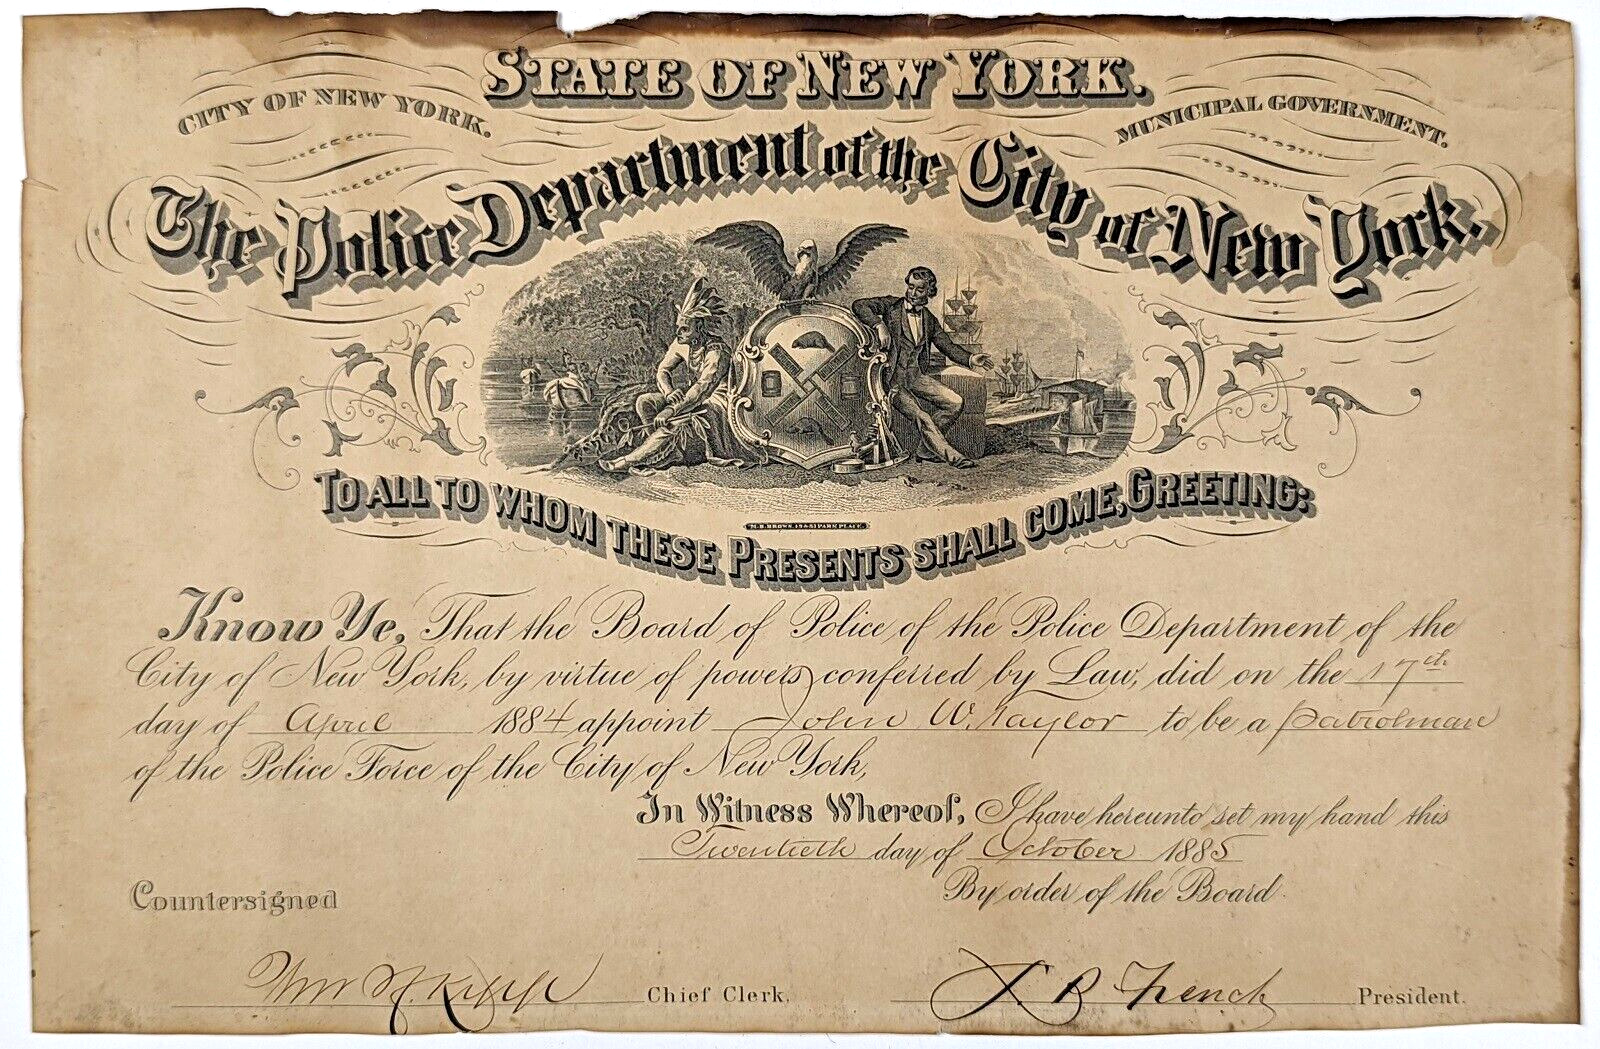 STATE OF NEW YORK.
CITY OF NEW YORK.
MUNICIPAL GOVERNMENT.
The Police Department of the City of New York.
M.B. BROWN, 49 & 51 PARK PLACE.
TO ALL TO WHOM THESE PRESENTS SHALL COME, GREETING:
Know Ye, That the Board of Police of the Police Department of the
City of New York, by virtue of powers conferred by Law, did on the 17th
day of April 1884 appoint John W. Taylor to be a Patrolman
of the Police Force of the City of New York,
In Witness Whereof, I have hereunto set my hand this
Twentieth day of October 1885
By order of the Board.
Countersigned
Wm H. Kipp Chief Clerk.
S B French President.